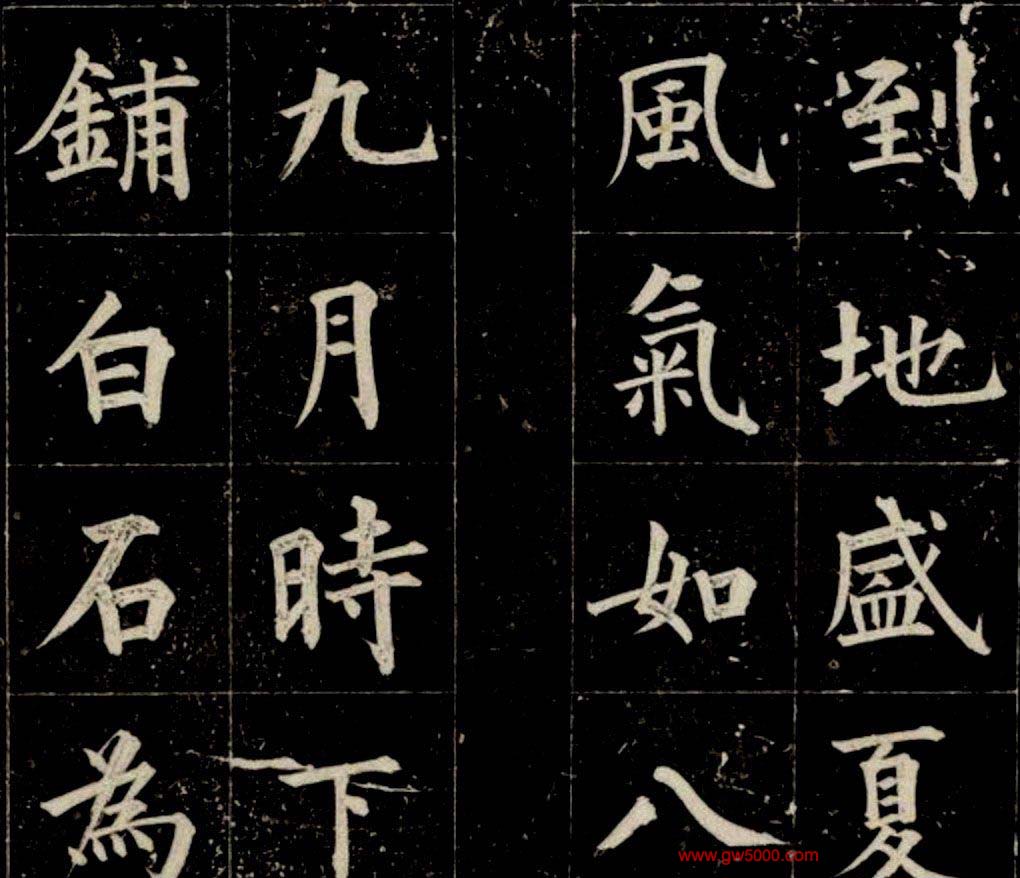 到地盛夏
風氣如八
九月時下
鋪白石為
www.gw5000.com